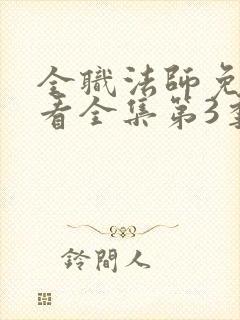 全職法師免
看全集第3季
鈴間人